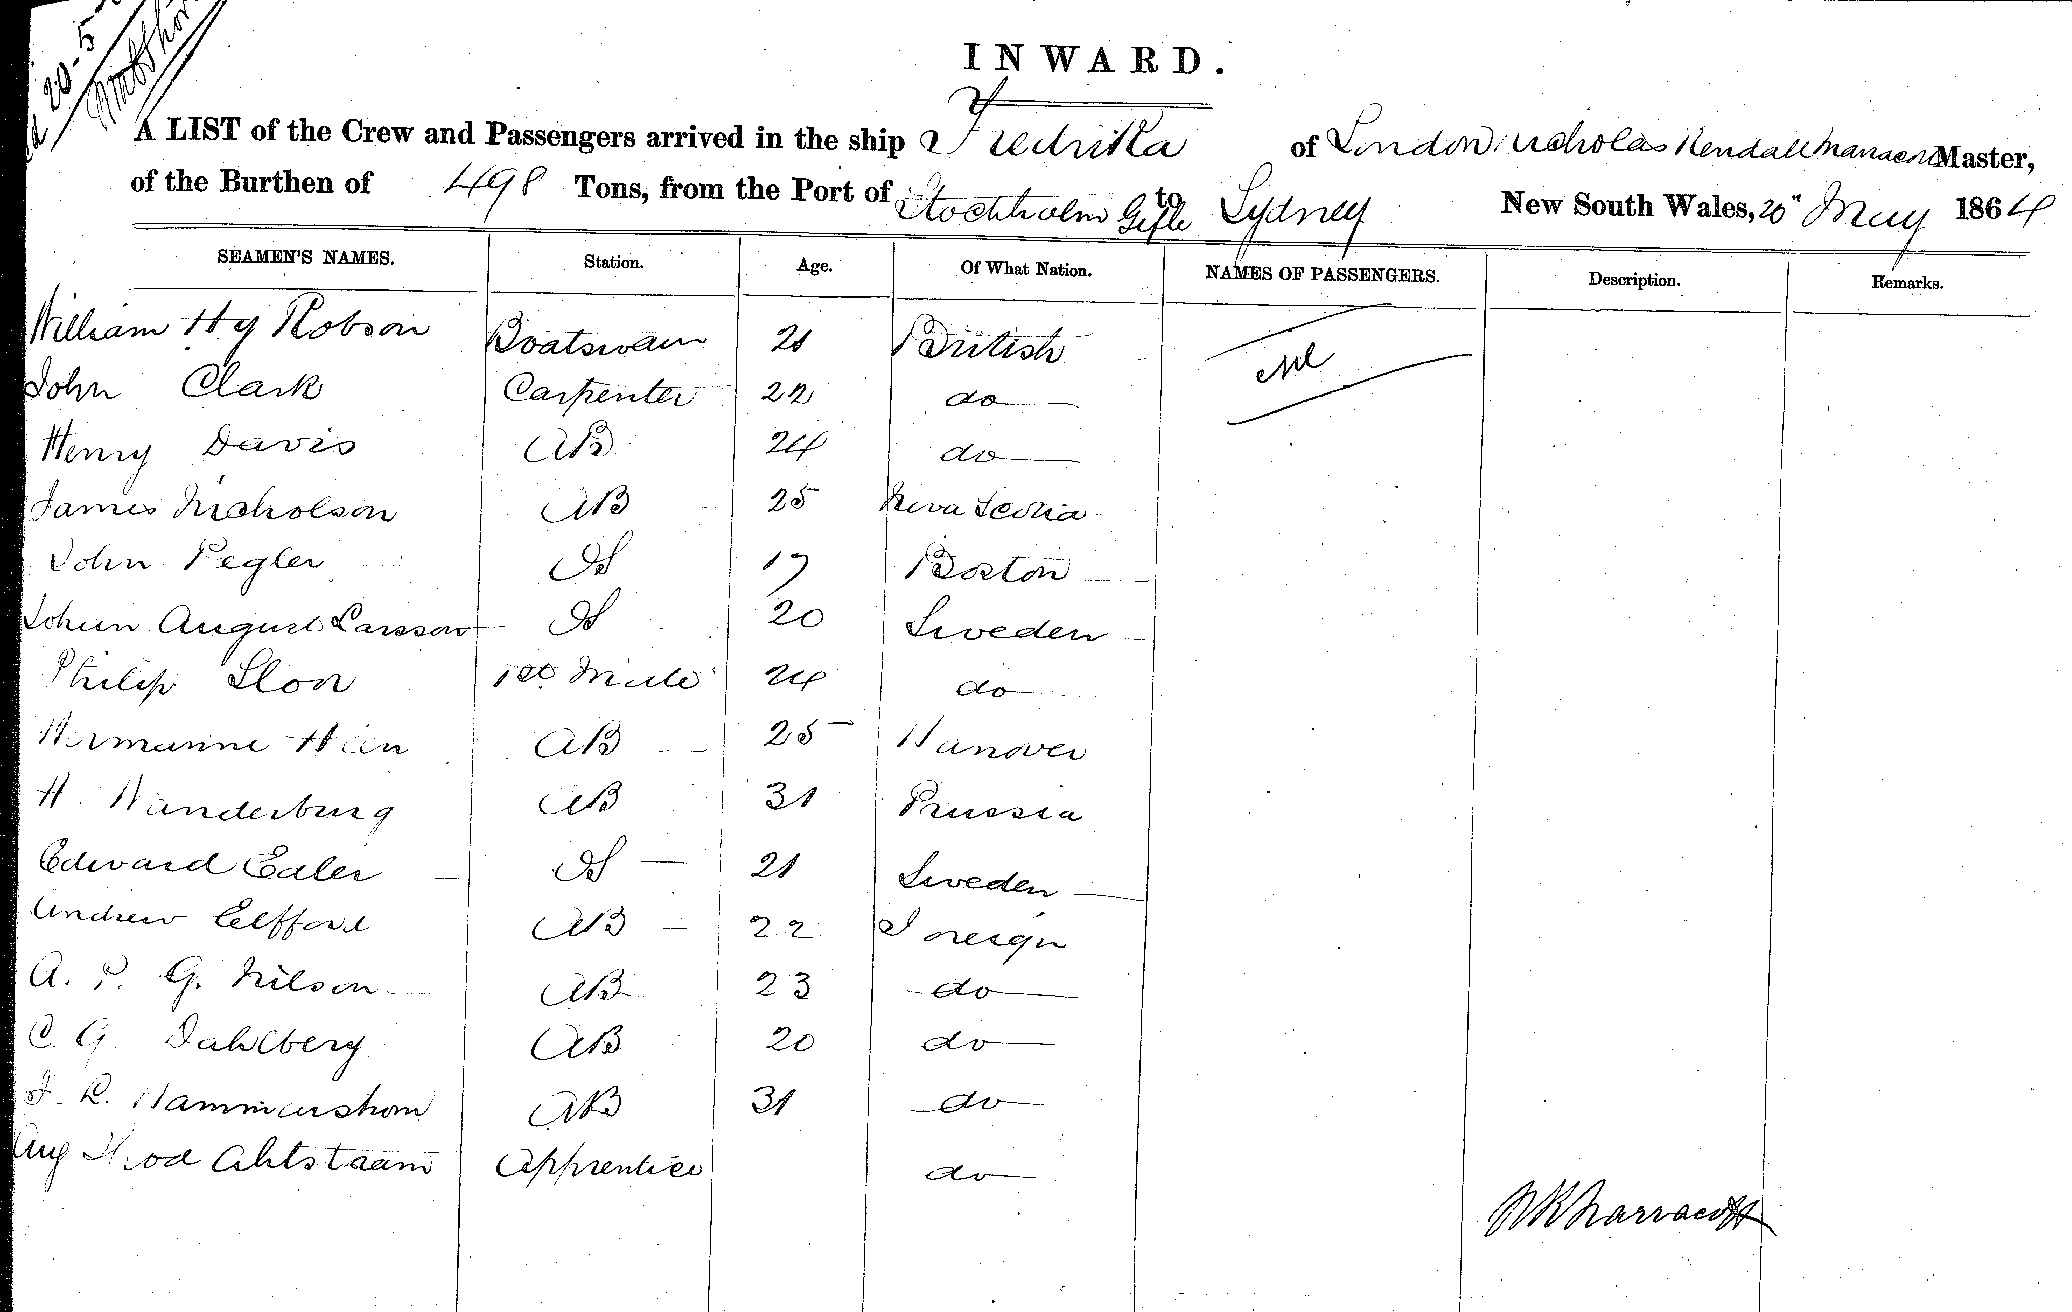 20-5
INWARD.
A LIST of the Crew and Passengers arrived in the ship Fredrika of London Nicholas Kendall Master,
of the Burthen of 498 Tons, from the Port of Stockholm Gefle to Sydney New South Wales, 20" May 1864
SEAMEN'S NAMES. Station. Age. Of What Nation. NAMES OF PASSENGERS. Description. Remarks.
William Hy Robson Boatswain 21 British Nil
John Clark Carpenter 22 do
Henry Davis AB 24 do
James Nicholson AB 25 Nova Scotia
John Pegler OS 17 Boston
Johan August Larsson OS 20 Sweden
Philip Slon 1st Mate 24 do
Hermanne Hien AB 25 Hanover
H. Wanderburg AB 31 Prussia
Edward Ealer OS 21 Sweden
Andrew Elfford AB 22 Foreign
A. P. G. Nilson AB 23 do
C. G. Dahlberg AB 20 do
J. R. Hammarstrom AB 31 do
Aug Ahlstraam Apprentice do